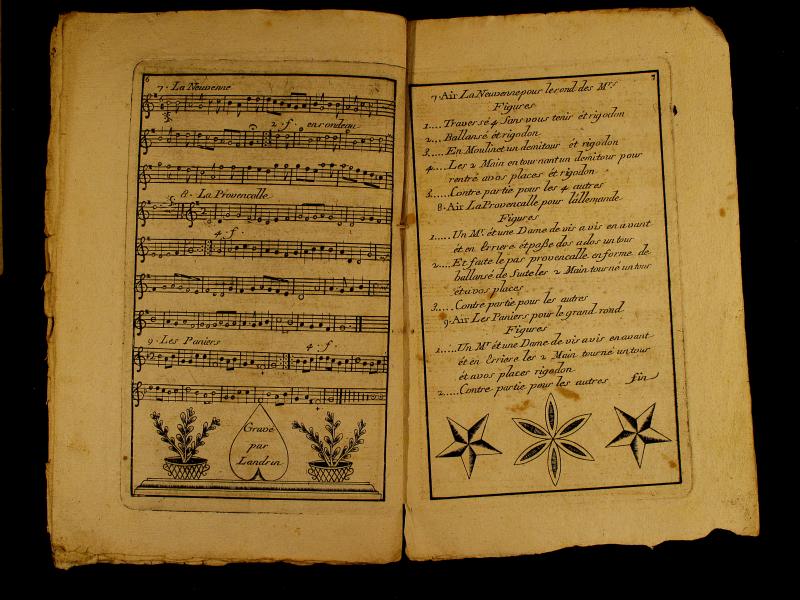 6
7. La Neuvenne
2. f. en rondeau
8. La Provencalle
4. f.
9. Les Paniers
4. f.
Gravé
par
Landrin
7
7. Air La Neuvenne pour le rond des Mrs
Figures
1.... Traversé 4 Sans vous tenir et rigodon
2.... Ballansé et rigodon
3.... En Moulinet un demitour et rigodon
4.... Les 2 Main en tournant un demitour pour
rentré avos places et rigodon
5.... Contre partie pour les 4 autres
8. Air La Provencalle pour l'allemande
Figures
1.... Un Mr. et une Dame de vis a vis en avant
et en Erriere et paße dos a dos un tour
2.... Et faite le pas provencalle en forme de
ballansé de Suite les 2 Main tourné un tour
et a vos places
3.... Contre partie pour les autres
9. Air Les Paniers pour le grand rond
Figures
1.... Un Mr et une Dame de vis a vis en avant
et en Erriere les 2 Main tourné un tour
et avos places rigodon
2.... Contre partie pour les autres fin